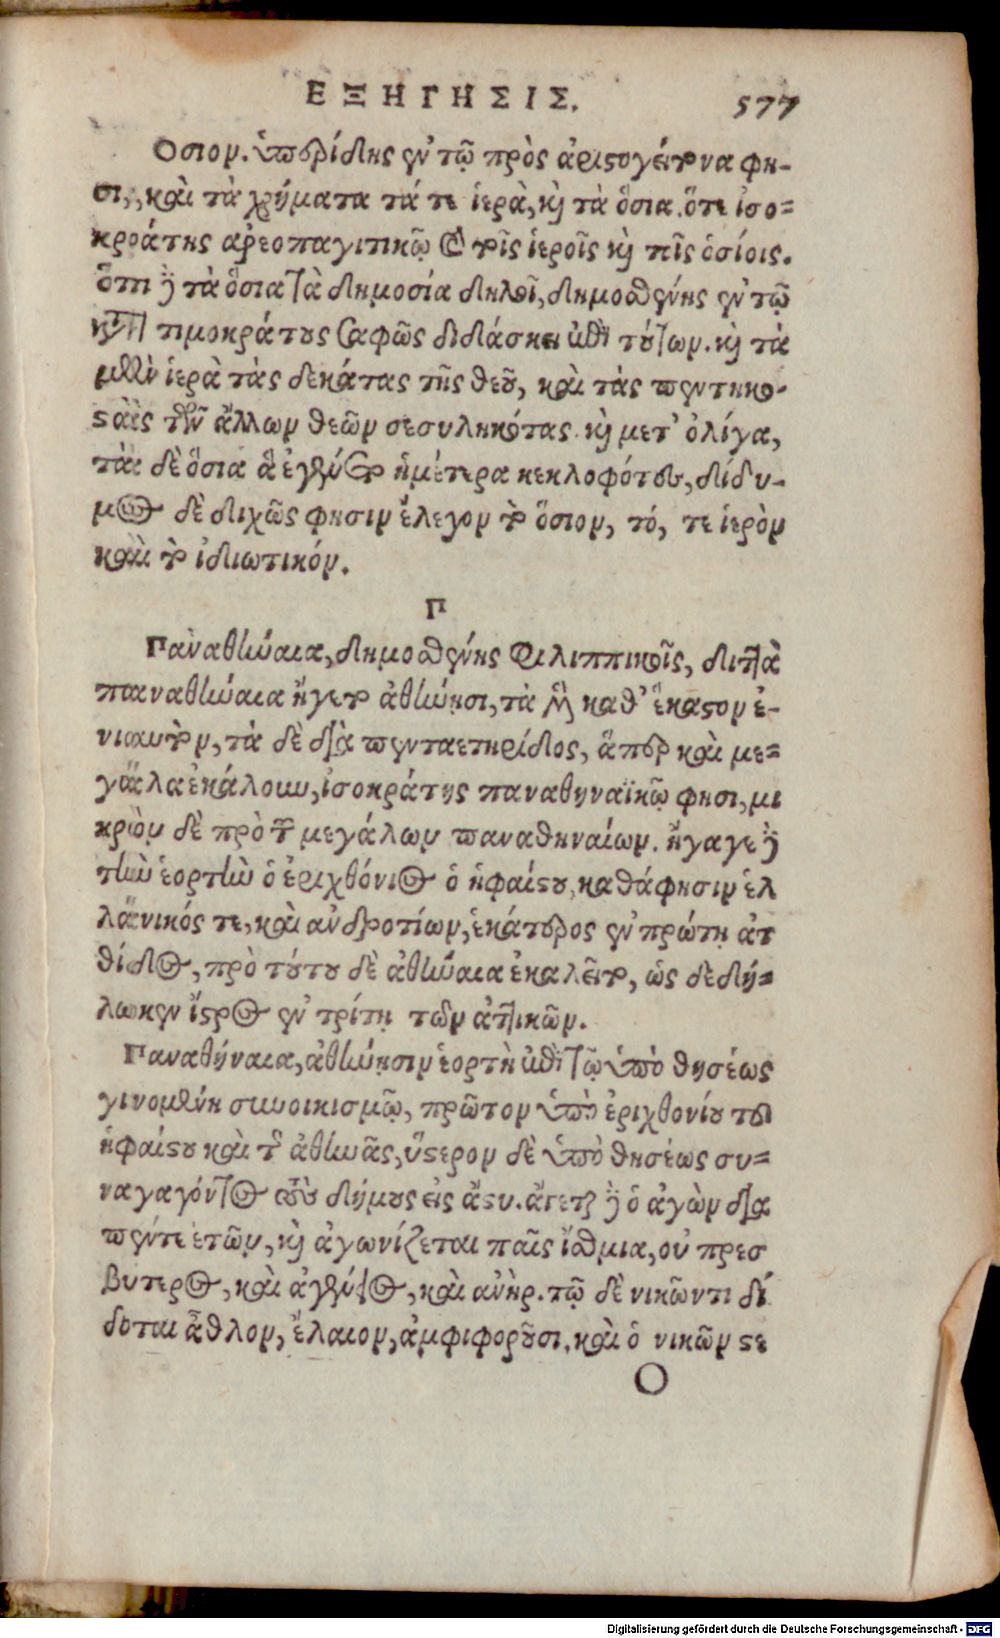 ΕΞΗΓΗΣΙΣ. 577
Ὅσιον. ὑπερίδης ἐν τῷ πρὸς ἀριστογείτονα φη-
σι, καὶ τὰ χρήματα τά τε ἱερὰ, καὶ τὰ ὅσια. ὅτε ἰσο-
κράτης ἀρεοπαγιτικῷ ἐν τοῖς ἱεροῖς καὶ τοῖς ὁσίοις.
ὅτι δὲ τὰ ὅσια τὰ δημοσία δηλοῖ, δημοσθένης ἐν τῷ
κατὰ τιμοκράτους σαφῶς διδάσκει ἐπὶ τούτων. καὶ τὰ
μὲν ἱερὰ τὰς δεκάτας τῆς θεοῦ, καὶ τὰς πεντηκο-
στὰς τῶν ἄλλων θεῶν σεσυληκότας. καὶ μετ' ὀλίγα,
τὰ δὲ ὅσια ἃ ἐγένετο ἡμέτερα κεκλοφότες, δίδυ-
μος δὲ διχῶς φησιν ἔλεγον τὸ ὅσιον, τό, τε ἱερὸν
καὶ τὸ ἰδιωτικόν.
Π
Παναθήναια, δημοσθένης Φιλιππικοῖς, διττὰ
παναθήναια ἤγετο ἀθήνησι, τὰ μὲν καθ' ἕκαστον ἐ-
νιαυτὸν, τὰ δὲ διὰ πενταετηρίδος, ἅπερ καὶ με-
γάλα ἐκάλουν, ἰσοκράτης παναθηναϊκῷ φησι, μι
κρὸν δὲ πρὸ τῶν μεγάλων παναθηναίων. ἤγαγε δὲ
τὴν ἑορτὴν ὁ ἐριχθόνιος ὁ ἡφαίστου, καθά φησιν ἑλ
λάνικός τε, καὶ ἀνδροτίων, ἑκάτερος ἐν πρώτῃ ἀτ
θίδος, πρὸ τούτου δὲ ἀθήναια ἐκαλεῖτο, ὡς δεδή-
λωκεν ἴστρος ἐν τρίτῃ τῶν ἀττικῶν.
Παναθήναια, ἀθήνησιν ἑορτὴ ἐπὶ τῷ ὑπὸ θησέως
γινομένη συνοικισμῷ, πρῶτον ὑπὸ ἐριχθονίου τοῦ
ἡφαίστου καὶ τῆς ἀθηνᾶς, ὕστερον δὲ ὑπὸ θησέως συ-
ναγαγόντος τοὺς δήμους εἰς ἄστυ. ἄγεται δὲ ὁ ἀγὼν διὰ
πέντε ἐτῶν, καὶ ἀγωνίζεται παῖς ἴσθμια, οὐ πρεσ
βύτερος, καὶ ἀγένειος, καὶ ἀνὴρ. τῷ δὲ νικῶντι δί
δοται ἆθλον, ἔλαιον, ἀμφιφορεῦσι. καὶ ὁ νικῶν στε
O
Digitalisierung gefördert durch die Deutsche Forschungsgemeinschaft - DFG